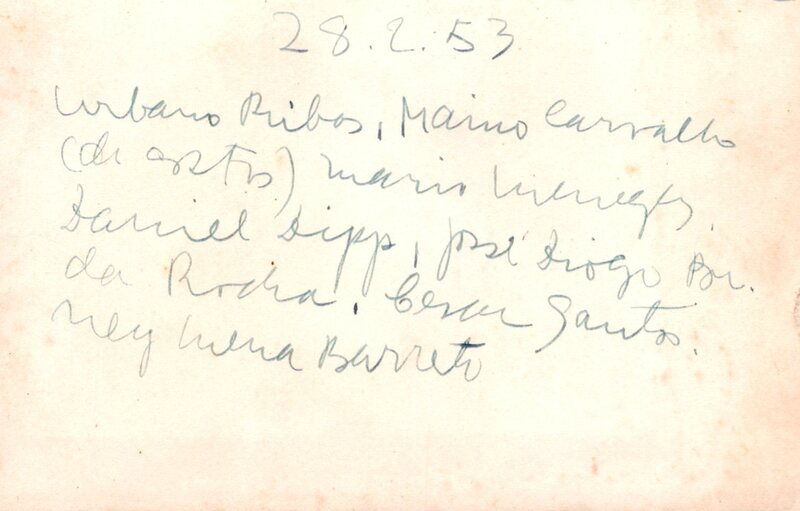 28.2.53
Urbano Ribas, Mario Carvalho
(de óstos) Mario Menezes,
Daniel Dipp, José Diogo Br.
da Rocha, Cesar Santos.
Ney Mena Barreto